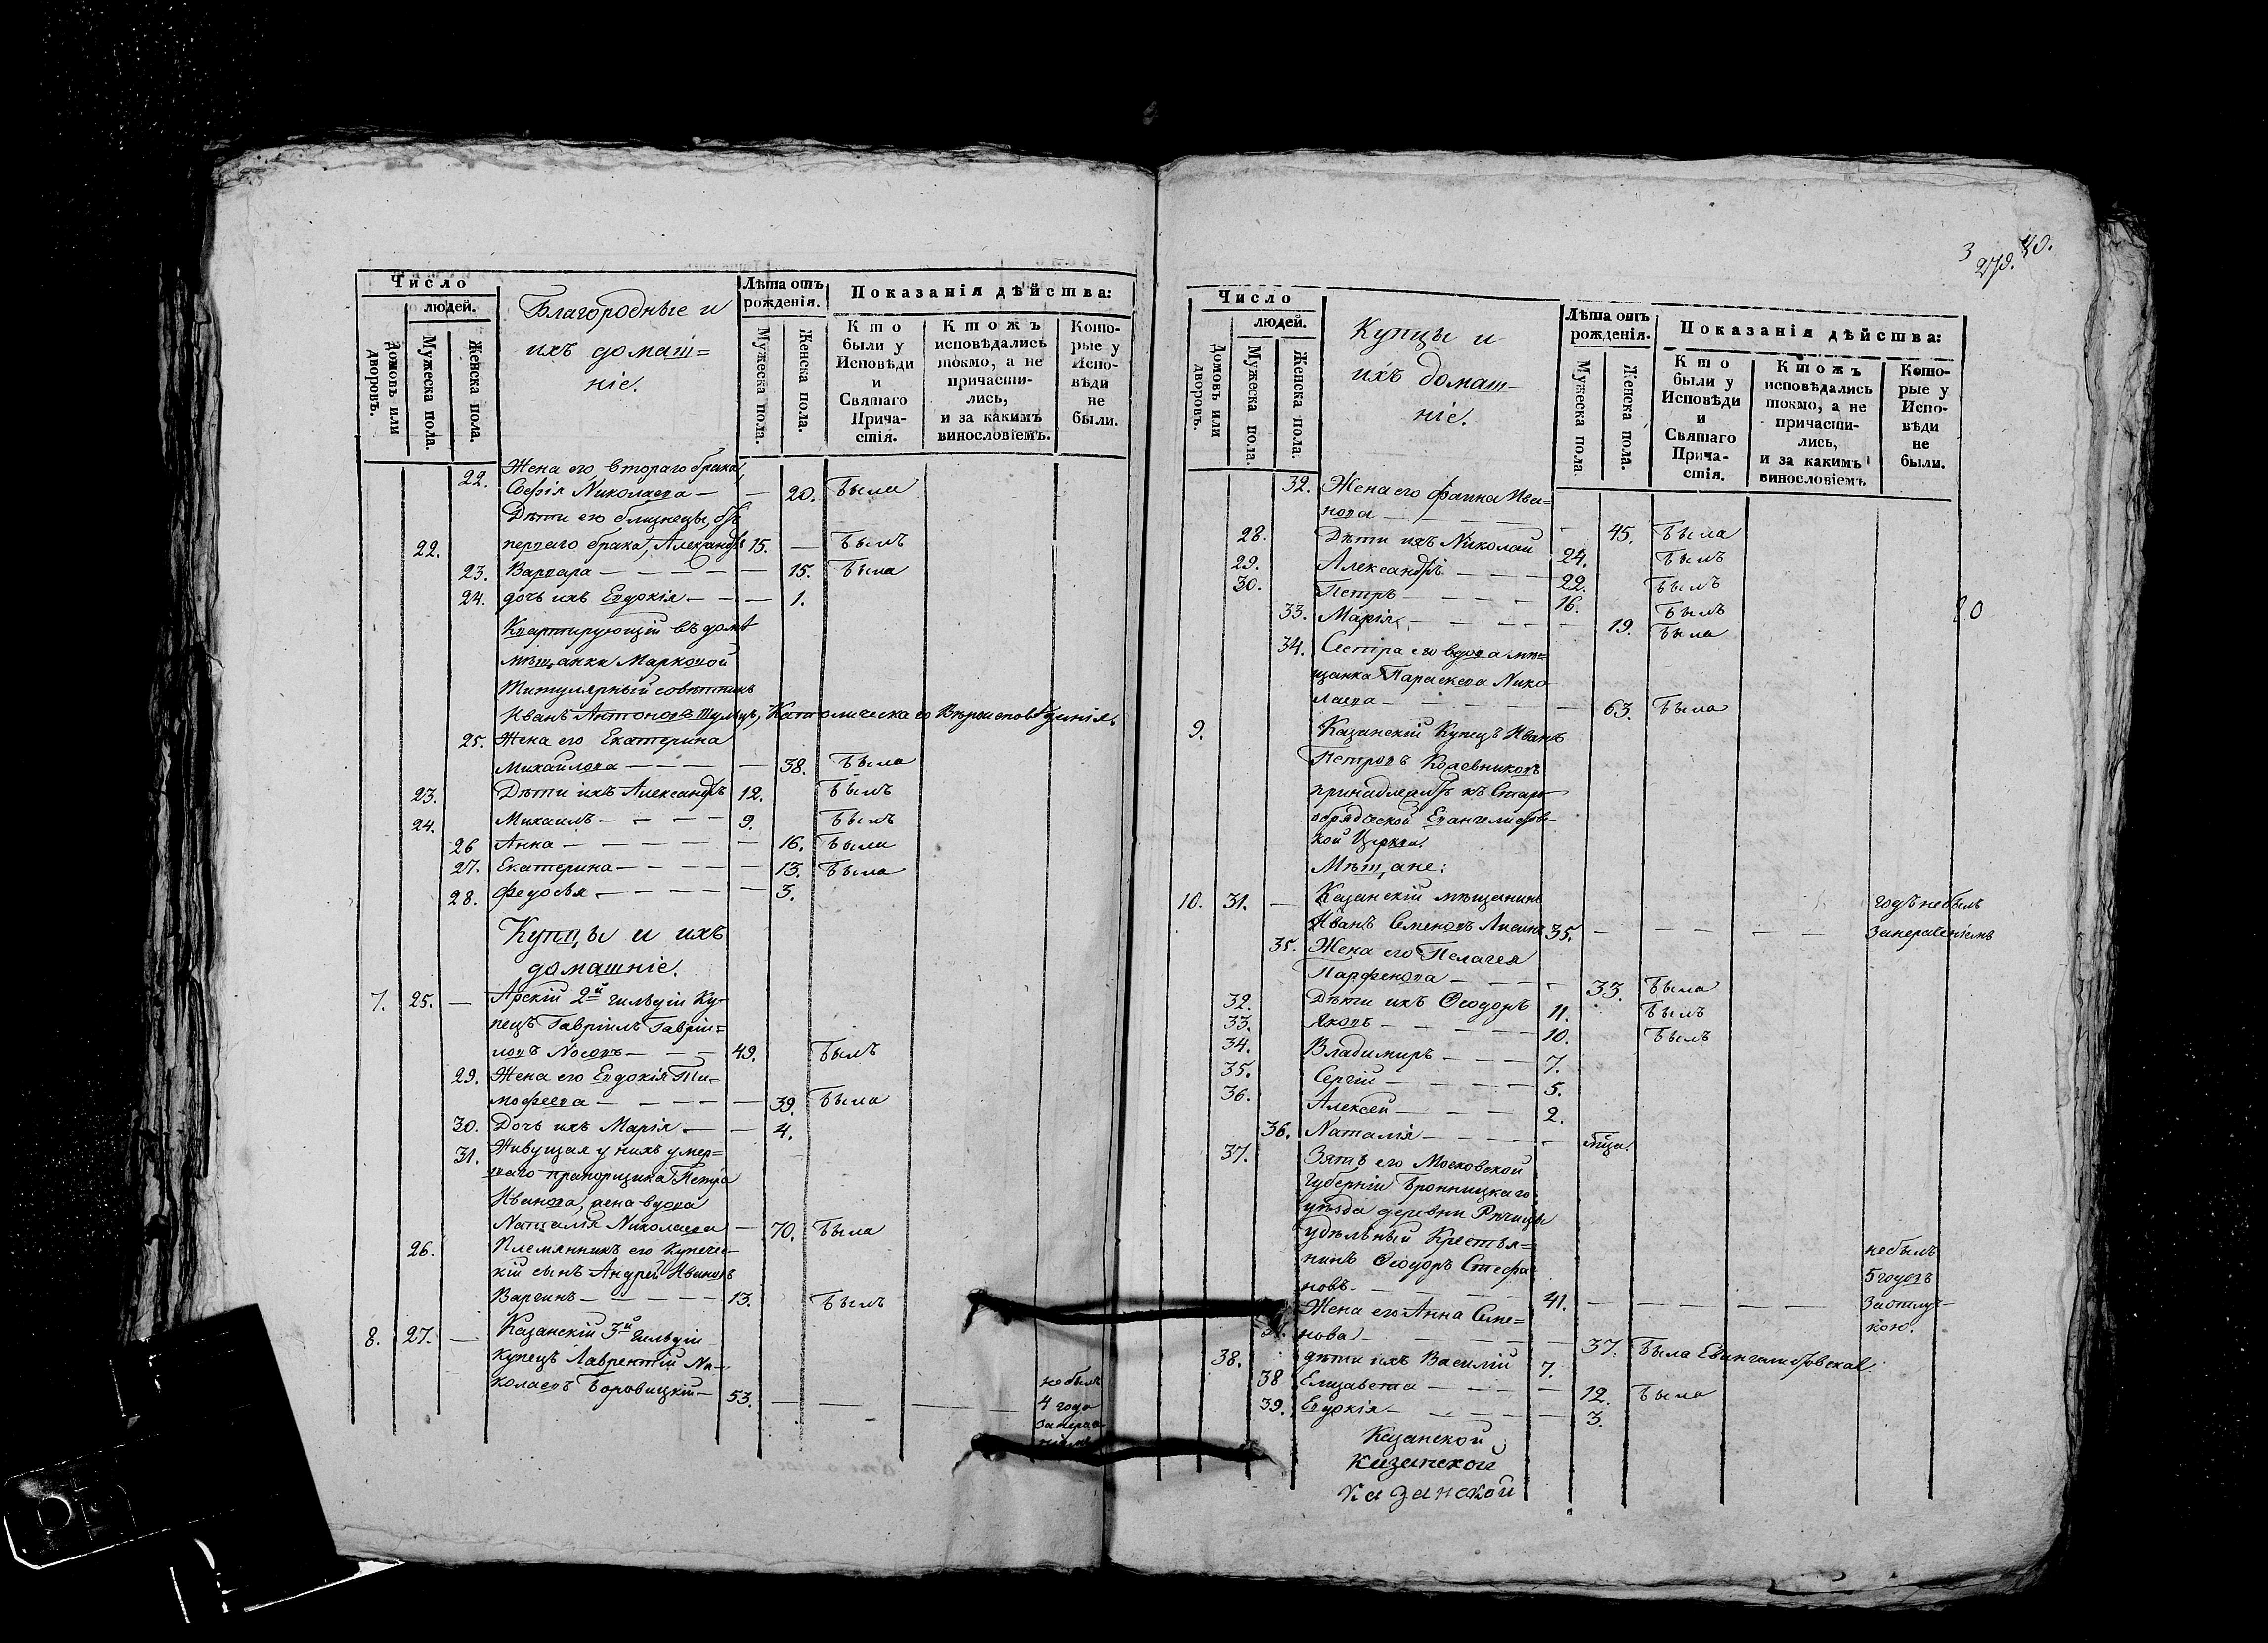 Число
людей.
Домовъ или дворовъ.
Мужеска пола.
Женска пола.
Благородные и
ихъ домаш=
ніе.
Лѣта отъ
рожденія.
Мужеска пола.
Женска пола.
Показанія дѣйства:
Кто
были у
Исповѣди
и
Святаго
Прича-
стія.
Ктожъ
исповѣдались
токмо, а не
причасти-
лись,
и за какимъ
винословіемъ.
Кото-
рые у
Испо-
вѣди
не
были.
22. Жена его втораго брака,
Софія Николаева — — 20. Была
Дѣти его близнецы, отъ
22. перваго брака, Александръ 15. — Былъ
23. Варвара — — — — — — 15. Была
24. дочь ихъ Евдокія — — — 1.
Квартирующій въ домѣ
мѣщанки Марковой
Титулярный совѣтникъ
Иванъ Антоновъ Католическаго Вѣроисповѣданія.
25. Жена его Екатерина
Михайлова — — — — — 38. Была
23. Дѣти ихъ Александръ 12. Былъ
24. Михаилъ — — — — 9. Былъ
26 Анна — — — — — — 16. Была
27. Екатерина — — — — — 13. Была
28. Федосья — — — — — 3.
Купцы и ихъ
домашніе.
7. 25. — Арскій 2й гильдіи Ку-
пецъ Гавріилъ Гаврі-
ловъ Носовъ — — — 49. Былъ
29. Жена его Евдокія Ти=
мофеева — — — — — 39. Была
30. Дочь ихъ Марія — — 4.
31. Живущая у нихъ умер=
шаго прапорщика Петра
Иванова, жена вдова
Наталія Николаева — 70. Была
26. Племянникъ его купече-
кій сынъ Андрей Ивановъ
Варгинъ — — — — — 13. Былъ
8. 27. — Казанскій 3й гильдіи
купецъ Лаврентій Ни-
колаевъ Боровицкій — 53. — — — — —
небылъ
4 года
Число
людей.
Домовъ или дворовъ.
Мужеска пола.
Женска пола.
Купцы и
ихъ домаш-
ніе.
Лѣта отъ
рожденія.
Мужеска пола.
Женска пола.
Показанія дѣйства:
Кто
были у
Исповѣди
и
Святаго
Прича-
стія.
Ктожъ
исповѣдались
токмо, а не
причасти-
лись,
и за какимъ
винословіемъ
Кото-
рые у
Испо-
вѣди
не
были.
32. Жена его Фаина Ива=
нова — — — — — 45. Была
28. Дѣти ихъ Николай 24. Былъ
29. Александръ — — — 22. Былъ
30. Петръ — — — — 16. Былъ
33. Марія — — — — — 19. Была
34. Сестра его вдова мѣ=
щанка Параскева Нико-
лаева — — — — — 63. Была
9. Казанскій Купецъ Иванъ
Петровъ Кожевниковъ
принадлежитъ къ Старо-
обрядческой Евангелистов-
кой Церкви.
Мѣщане:
10. 31. — Казанскій мѣщанинъ
Иванъ Семеновъ 35. — — — — —
годъ небылъ
занераченіемъ
35. Жена его Пелагея
Парфенова — — — — 33. Была
32. Дѣти ихъ Ѳеодоръ 11. Былъ
33. Яковъ — — — — 10. Былъ
34. Владимиръ — — — 7.
35. Сергій — — — — 5.
36. Алексей — — — 2.
36. Наталія — — — — —
37. Зять его Московской
Губерніи Бронницкаго
уѣзда деревни Рѣчицы
удѣльный Крестья=
нинъ Ѳеодоръ Стефа-
новъ — — — — — 41. — — — — —
небылъ
5 годовъ
заотлуч-
кою.
Жена его Анна Семе=
нова — — — — — 37. Была Евангелистовская.
38. дѣти ихъ Василій 7.
38 Елизавета — — — — 12. Была
39. Евдокія — — — — — 3.
Казанской
Казанской
Казанской